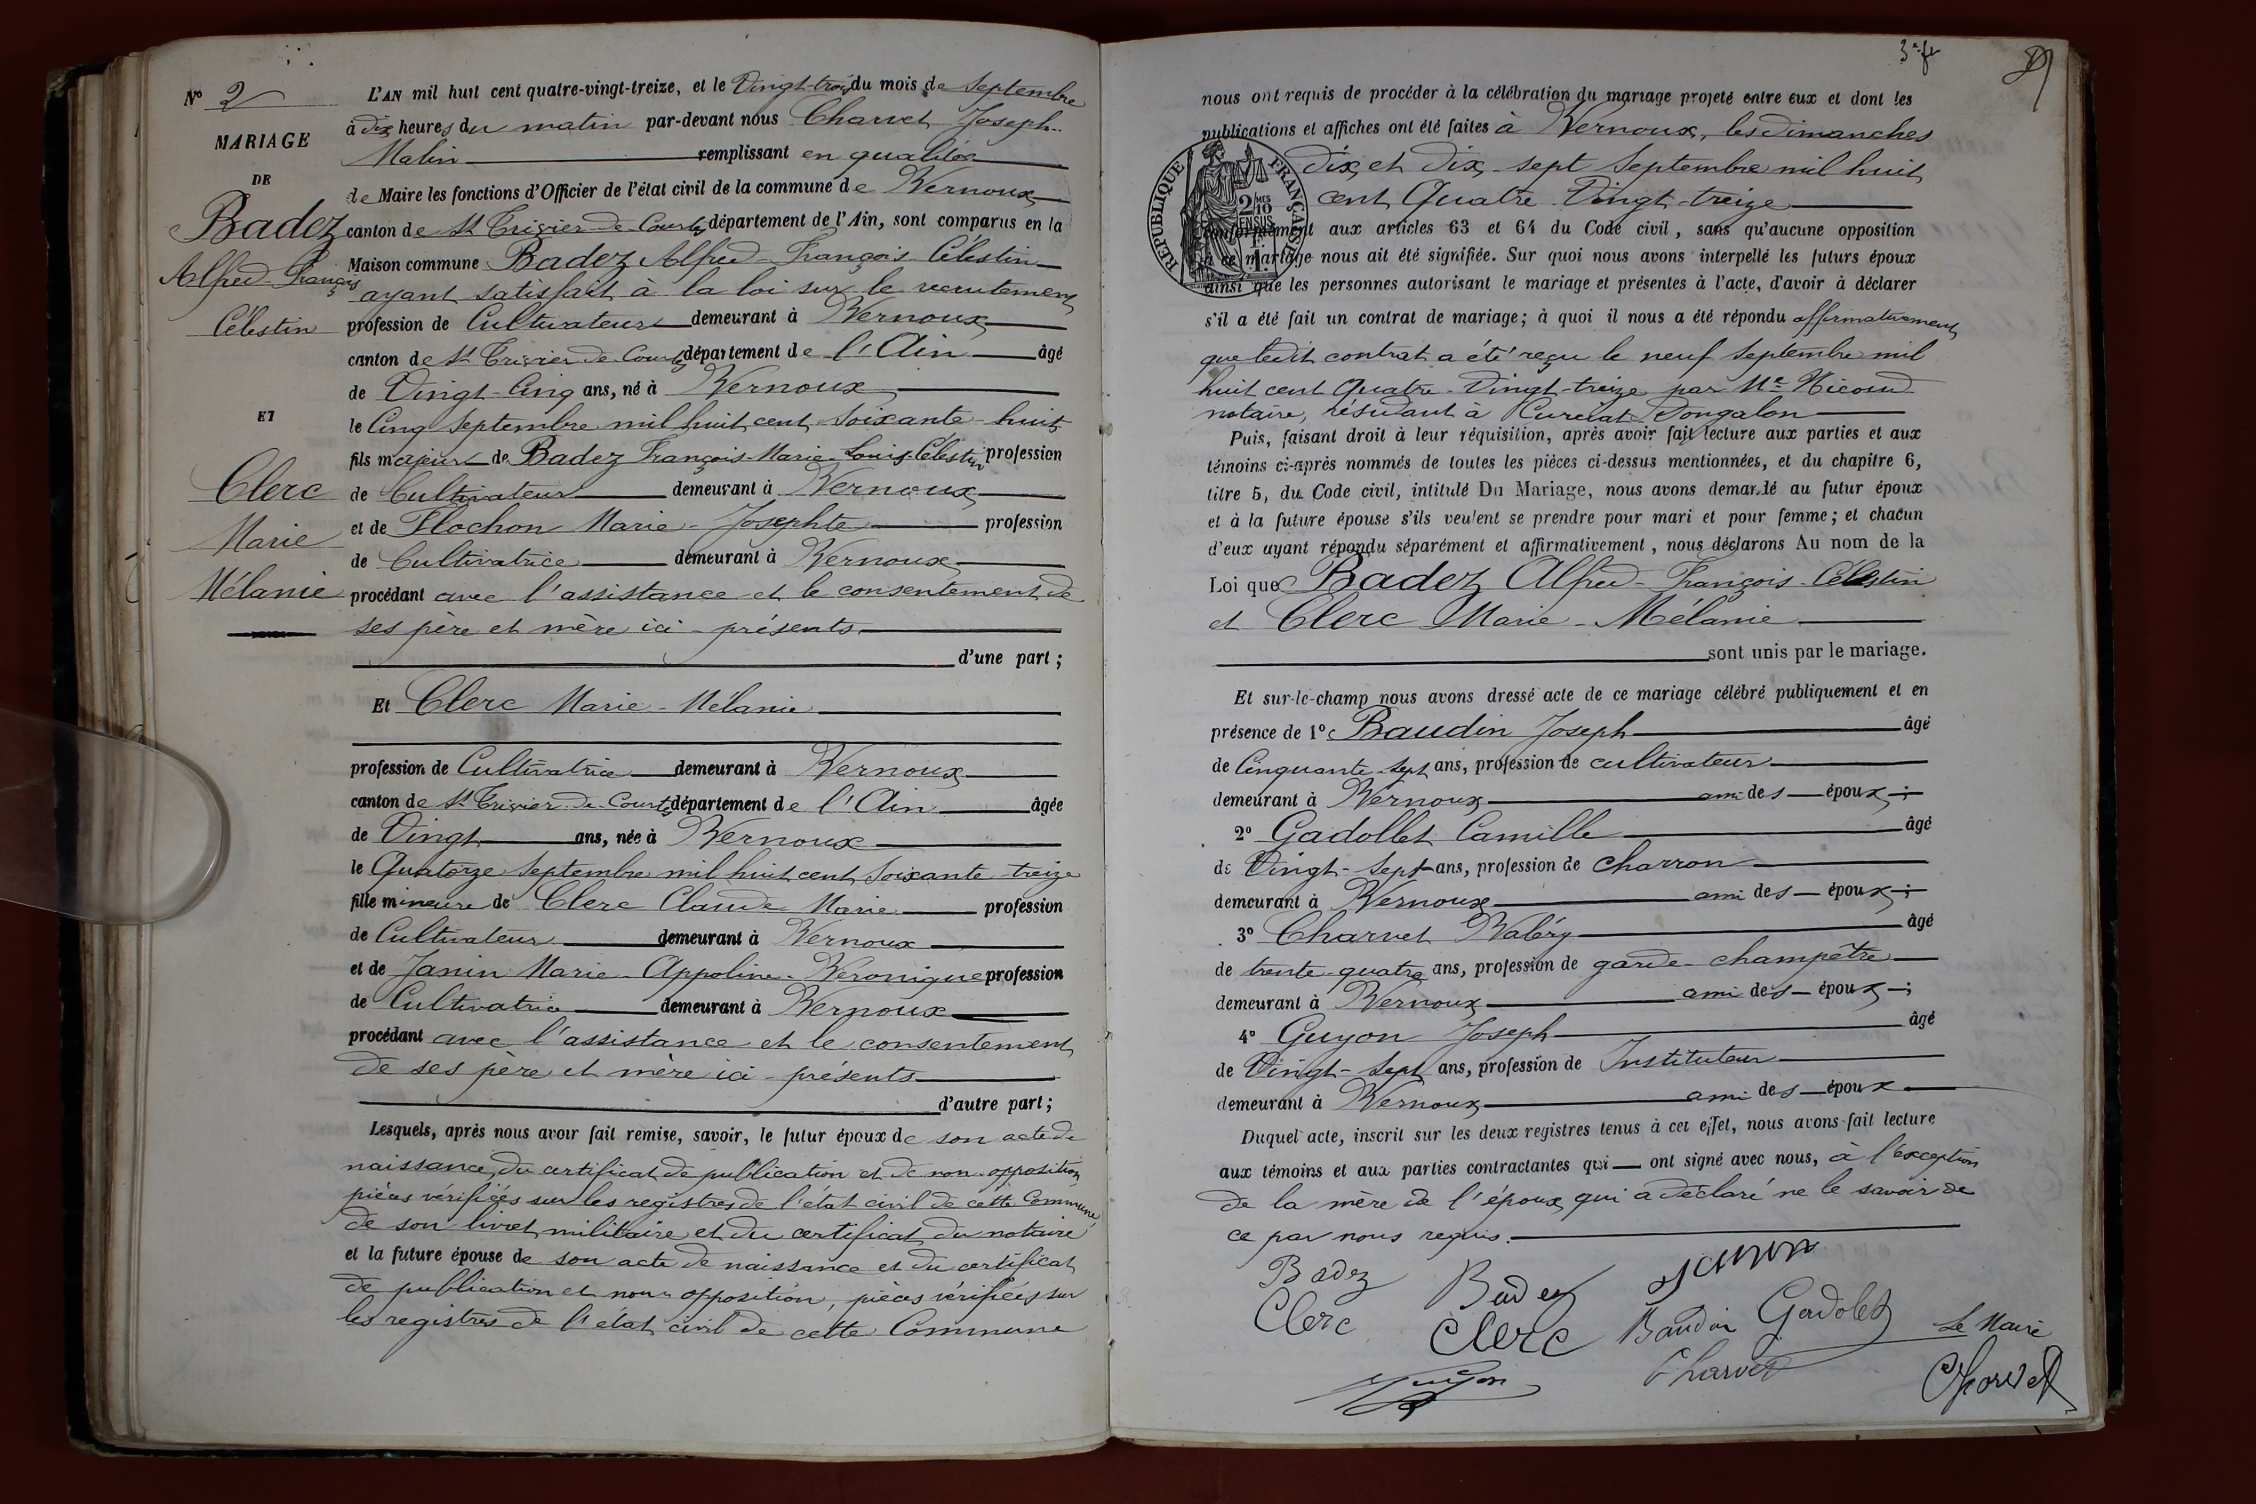 N° 2
MARIAGE
DE
Badez
Alfred François
Célestin
ET
Clerc
Marie
Mélanie
L'AN mil huit cent quatre-vingt-treize, et le Vingt-trois du mois de Septembre
à dix heures du matin par-devant nous Charvet Joseph
Malin remplissant en qualité
de Maire les fonctions d'Officier de l'état civil de la commune de Vernoux
canton de St Trivier-de-Courtes département de l'Ain, sont comparus en la
Maison commune Badez Alfred-François-Célestin
ayant satisfait à la loi sur le recrutement
profession de Cultivateur demeurant à Vernoux
canton de St Trivier-de-Courtes département de l'Ain âgé
de Vingt-Cinq ans, né à Vernoux
le Cinq Septembre mil huit cent Soixante-huit
fils majeur de Badez François-Marie-Louis-Célestin profession
de Cultivateur demeurant à Vernoux
et de Flochon Marie-Josephte profession
de Cultivatrice demeurant à Vernoux
procédant avec l'assistance et le consentement de
ses père et mère ici-présents
d'une part;
Et Clerc Marie-Mélanie
profession de Cultivatrice demeurant à Vernoux
canton de St Trivier-de-Courtes département de l'Ain âgée
de Vingt ans, née à Vernoux
le Quatorze Septembre mil huit cent Soixante-treize
fille mineure de Clerc Claude Marie profession
de Cultivateur demeurant à Vernoux
et de Janin Marie-Appoline-Veronique profession
de Cultivatrice demeurant à Vernoux
procédant avec l'assistance et le consentement
de ses père et mère ici-présents
d'autre part;
Lesquels, après nous avoir fait remise, savoir, le futur époux de son acte de
naissance, du certificat de publication et de non-opposition
pièces vérifiées sur les registres de l'état civil de cette Commune,
de son livret militaire et du certificat du notaire
et la future épouse de son acte de naissance et du certificat
de publication et non-opposition, pièces vérifiées sur
les registres de l'état civil de cette Commune
nous ont requis de procéder à la célébration du mariage projeté entre eux et dont les
publications et affiches ont été faites à Vernoux, les Dimanches
Dix et Dix-sept Septembre mil huit
cent Quatre-Vingt-treize
conformément aux articles 63 et 64 du Code civil, sans qu'aucune opposition
à ce mariage nous ait été signifiée. Sur quoi nous avons interpellé les futurs époux
ainsi que les personnes autorisant le mariage et présentes à l'acte, d'avoir à déclarer
s'il a été fait un contrat de mariage; à quoi il nous a été répondu affirmativement
que ledit contrat a été reçu le neuf Septembre mil
huit cent Quatre-Vingt-treize par Me Nicoud
notaire, résidant à Curciat-Dongalon
Puis, faisant droit à leur réquisition, après avoir fait lecture aux parties et aux
témoins ci-après nommés de toutes les pièces ci-dessus mentionnées, et du chapitre 6,
titre 5, du Code civil, intitulé Du Mariage, nous avons demandé au futur époux
et à la future épouse s'ils veulent se prendre pour mari et pour femme; et chacun
d'eux ayant répondu séparément et affirmativement, nous déclarons Au nom de la
Loi que Badez Alfred-François-Célestin
et Clerc Marie-Mélanie
sont unis par le mariage.
Et sur-le-champ nous avons dressé acte de ce mariage célébré publiquement et en
présence de 1° Baudin Joseph âgé
de Cinquante-Sept ans, profession de cultivateur
demeurant à Vernoux ami des époux;
2° Gadollet Camille âgé
de Vingt-Sept ans, profession de charron
demeurant à Vernoux ami des époux;
3° Charvet Valéry âgé
de trente-quatre ans, profession de garde-champêtre
demeurant à Vernoux ami des époux;
4° Guyon Joseph âgé
de Vingt-Sept ans, profession de Instituteur
demeurant à Vernoux ami des époux
Duquel acte, inscrit sur les deux registres tenus à cet effet, nous avons fait lecture
aux témoins et aux parties contractantes qui ont signé avec nous, à l'exception
de la mère de l'époux qui a déclaré ne le savoir de
ce par nous requis.
Badez Badez Janin
Clerc Clerc Baudin Gadolet Le Maire
Guyon Charvet Charvet
RÉPUBLIQUE FRANÇAISE
2/10 EN SUS